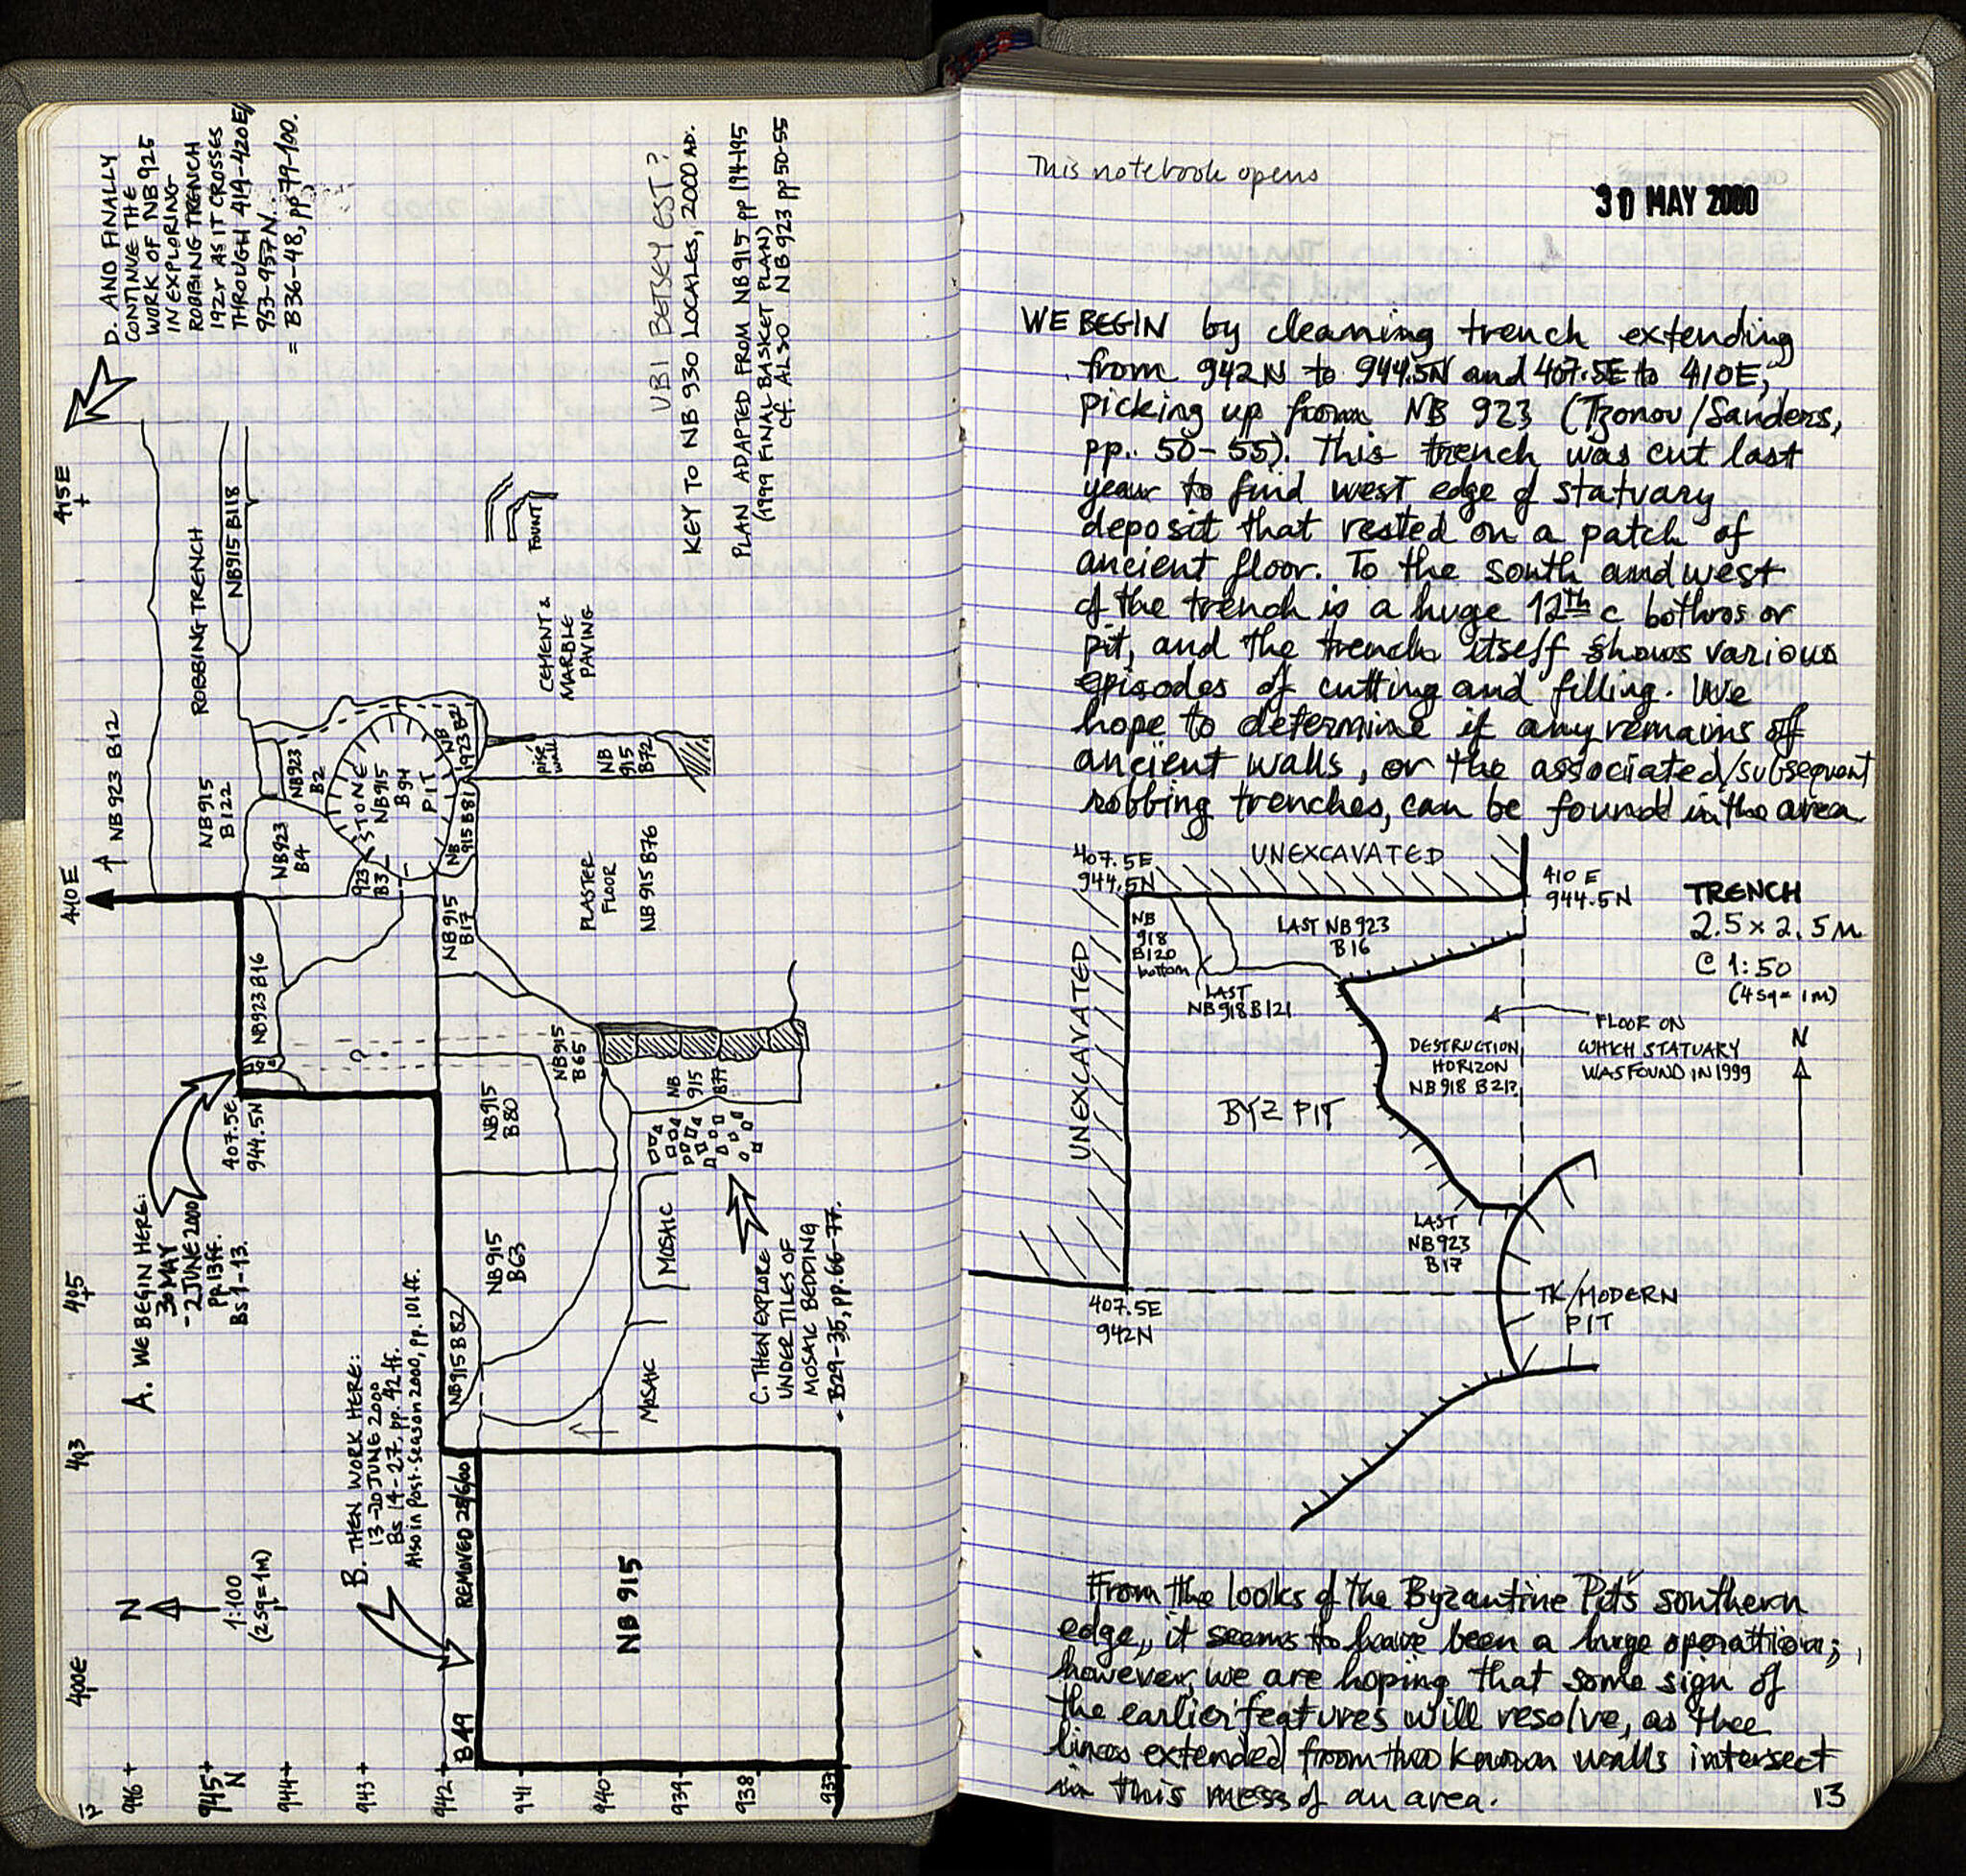 D. AND FINALLY
CONTINUE THE
WORK OF NB 925
IN EXPLORING
ROBBING TRENCH
192r AS IT CROSSES
THROUGH 419-420E/
953-957N.
= B36-48, pp 79-100.
UBI BETSEY EST?
KEY TO NB 930 LOCALES, 2000 AD.
PLAN ADAPTED FROM NB 915 pp 194-195
(1999 FINAL BASKET PLAN)
cf. ALSO NB 923 pp 50-55
415E
410E
405
403
400E
NB 923 B12
ROBBING TRENCH
NB915 B118
NB915
B122
NB923
B4
NB923
B2
923
B3
STONE
NB915
B94
PIT
NB
923 B21
NB
915 B81
FOUNT
CEMENT &
MARBLE
PAVING
prise
wall
NB
915
B72
PLASTER
FLOOR
NB 915 B76
NB915
B17
NB923 B16
?
NB915
B65
NB
915
B77
NB915
B80
407.5E
944.5N
A. WE BEGIN HERE:
30 MAY
- 2 JUNE 2000
pp. 13 ff.
Bs 1-13.
NB915
B63
NB915 B82
MOSAIC
MOSAIC
C. THEN EXPLORE
UNDER TILES OF
MOSAIC BEDDING
- B29-35, pp. 66-77.
B. THEN WORK HERE:
13-20 JUNE 2000
Bs 14-27, pp. 42 ff.
Also in Post-season 2000, pp. 101 ff.
REMOVED 28/6/00
B49
NB 915
N
1:100
(2 sq = 1M)
946
945
N
944
943
942
941
940
939
938
937
12
This notebook opens
30 MAY 2000
WE BEGIN by cleaning trench extending
from 942N to 944.5N and 407.5E to 410E,
picking up from NB 923 (Tzonou/Sanders,
pp. 50-55). This trench was cut last
year to find west edge of statuary
deposit that rested on a patch of
ancient floor. To the south and west
of the trench is a huge 12th c bothros or
pit, and the trench itself shows various
episodes of cutting and filling. We
hope to determine if any remains of
ancient walls, or the associated/subsequent
robbing trenches, can be found in the area
407.5E
944.5N
UNEXCAVATED
410 E
944.5N
TRENCH
2.5 x 2.5 M
@ 1:50
(4 sq = 1M)
NB
918
B120
bottom
LAST NB 923
B16
LAST
NB 918 B121
UNEXCAVATED
FLOOR ON
WHICH STATUARY
WAS FOUND IN 1999
DESTRUCTION
HORIZON
NB 918 B21?
N
BYZ PIT
LAST
NB 923
B17
TK/MODERN
PIT
407.5E
942N
From the looks of the Byzantine Pit's southern
edge, it seems to have been a huge operation;
however, we are hoping that some sign of
the earlier features will resolve, as the
lines extended from two known walls intersect
in this mess of an area.
13